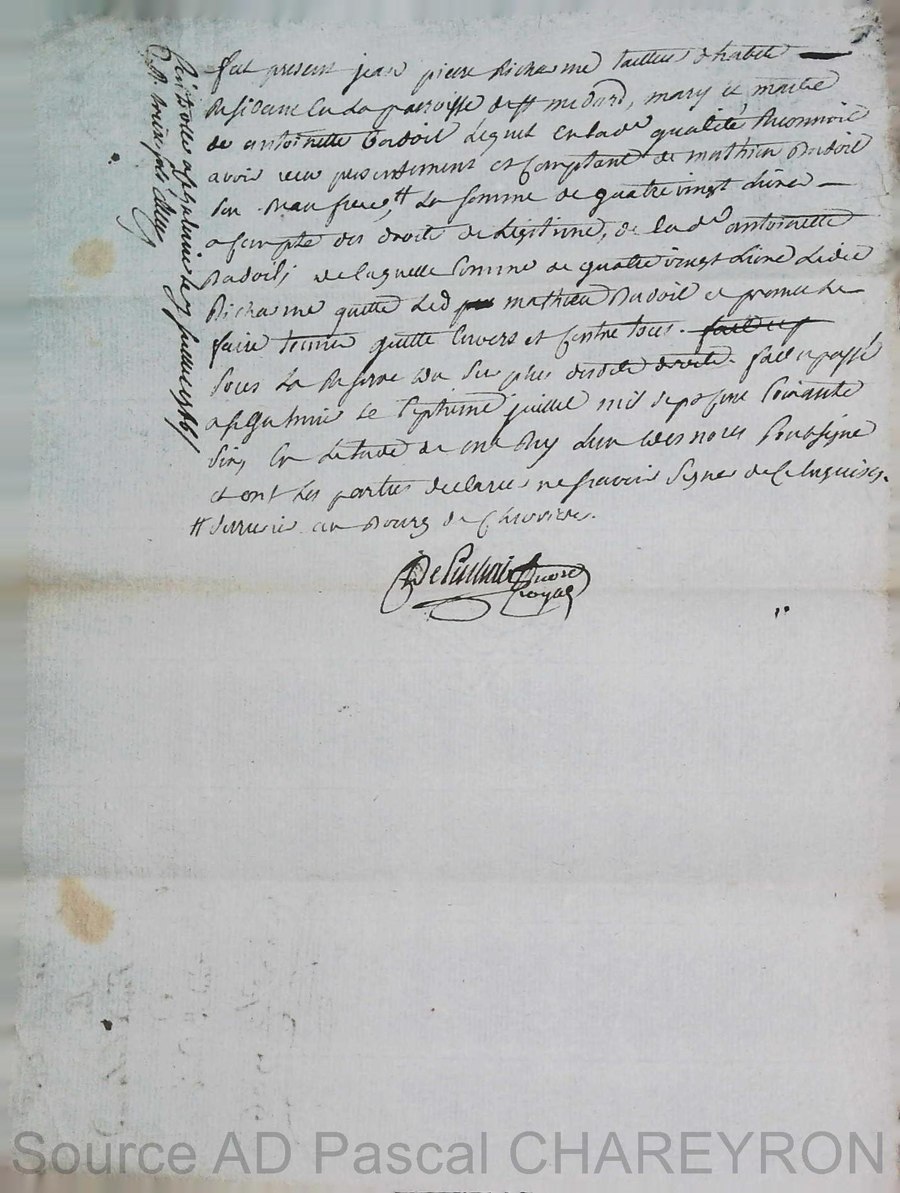 fut present jean pierre Richarme tailleur d'habits
Residant en la paroisse de st medard, mary et maitre
de antoinette Badoil lequel en lad.e qualité Reconnoit
avoir reçu presentement et comptant de mathieu Badoil
son Beau frere, # la somme de quatre vingt livres
a compte des droits de legitime, de lad.e antoinette
Badoil; de laquelle somme de quatre vingt livres ledit
Richarme quitte led mathieu Badoil et promet le
faire tenir quitte envers et contre tous.
sous la Reserve du sur plus desdits droits. fait et passé
a le septieme juillet mil sept cent soixante
six, en letude de l'un des nous soussigné
et ont les parties declarées ne sçavoir signer de ce enquises.
# au Bourg de
Nore
royal
Controllé a le juillet 1766
R.
Source AD Pascal CHAREYRON